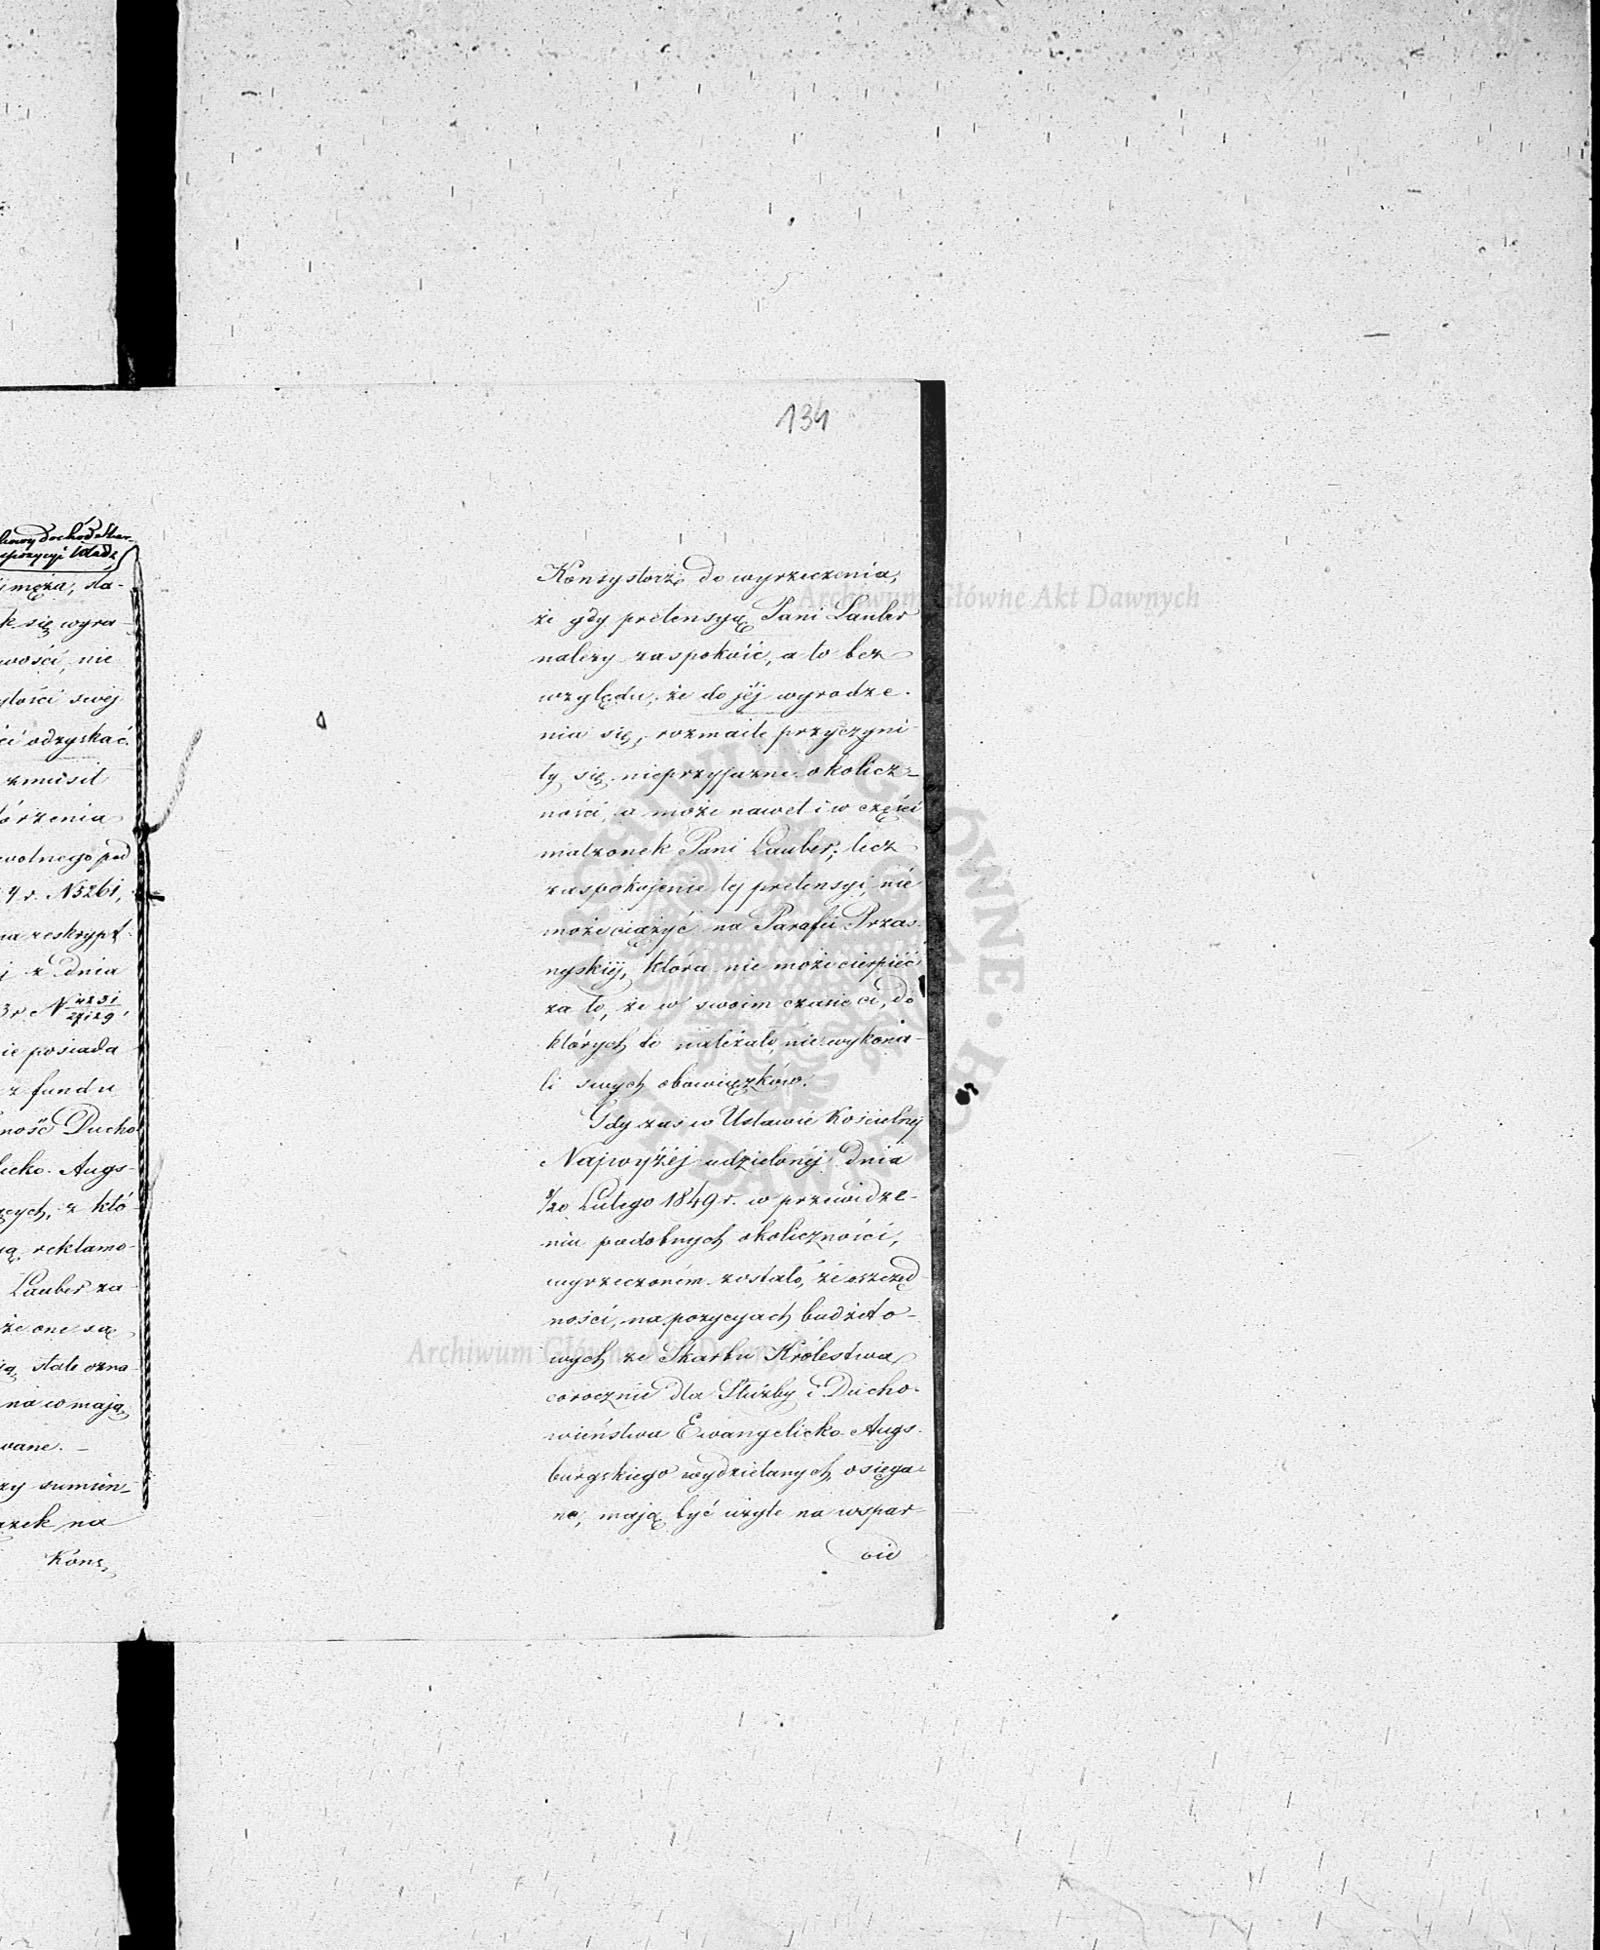 134
chowy dochód Skar-
pozycyi Władz
męża, sta-
k się wyra-
wości, nie
ytości swej
ci odzyskać.
zmusił
órzenia
wolnego pod
4 r. N 5261,
na reskrypt
j z dnia
3 r. N
ie posiada
z fundu
ność Ducho
licko-Augs-
ących, z któ-
ą reklamo-
Lauber za-
że one są
ą state ozna-
na co mają
wane. –
zy sumien-
ązek na
Kons,
Konsystorz do wyrzeczenia,
że gdy pretensyą Pani Lauber
należy zaspokoić, a to bez
względu, że do jéj wyrodze-
nia się, rozmaite przyczyni
ły się nieprzyjazne okolicz-
ności, a może nawet i w części
małżonek Pani Lauber; lecz
zaspokojenie téj pretensyi, nie
może ciążyć na Parafii Przas-
nyskiéj, która nie może cierpieć
za to, że w swoim czasie ci, do
których to należało, nie wykona-
li swych obowiązków.
Gdy zas w Ustawie Kościelnéj
Najwyżéj udzielonéj dnia
8/20 Lutego 1849 r. w przewidze-
niu podobnych okoliczności,
wyrzeczoném zostało, że oszczęd
ności, na pozycyach budżeto-
wych ze Skarbu Królestwa
corocznie dla Służby i Ducho-
wieństwa Ewangelicko-Augs-
burgskiego wydzielanych osięga-
ne, mają być użyte na wspar-
cie
Archiwum Główne Akt Dawnych
Archiwum Główne Akt Dawnych
ARCHIWUM GŁÓWNE AKT DAWNYCH